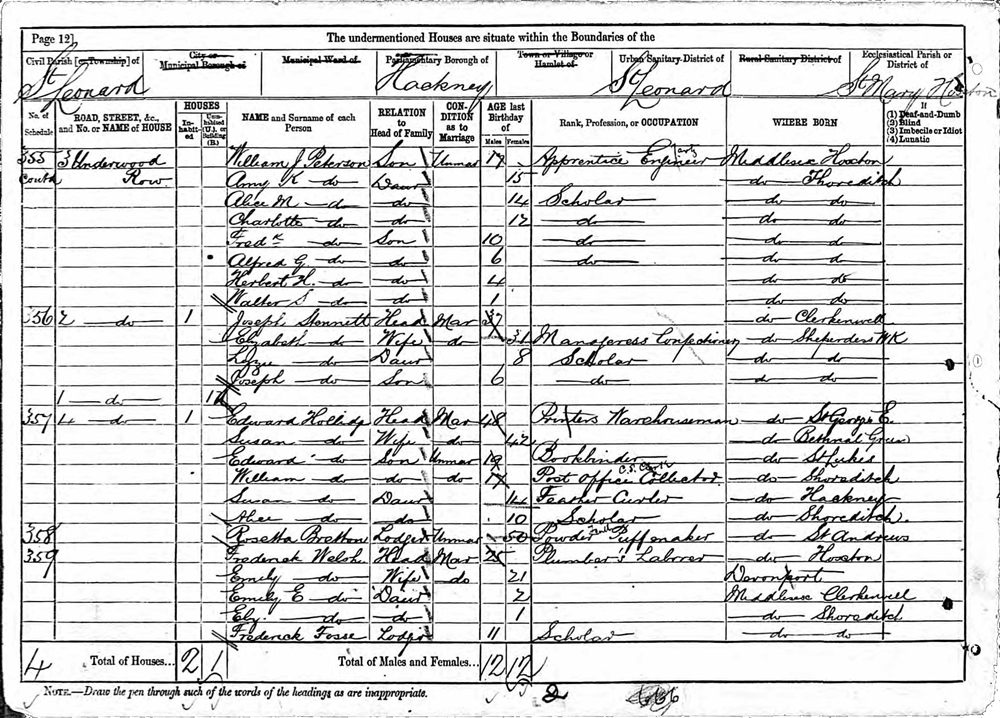 Page 12] The undermentioned Houses are situate within the Boundaries of the
Civil Parish [or Township] of City or Municipal Borough of Municipal Ward of Parliamentary Borough of Town or Village or Hamlet of Urban Sanitary District of Rural Sanitary District of Ecclesiastical Parish or District of
St Leonard Hackney St Leonard St Mary Hoxton
No. of Schedule ROAD, STREET, &c., and No. or NAME of HOUSE HOUSES In-habit-ed Unin-habited (U.), or Building (B.) NAME and Surname of each Person RELATION to Head of Family CON-DITION as to Marriage AGE last Birthday of Males Females Rank, Profession, or OCCUPATION WHERE BORN If (1) Deaf-and-Dumb (2) Blind (3) Imbecile or Idiot (4) Lunatic
355 3 Underwood William J. Peterson Son Unmar 17 Apprentice Engineer Middlesex Hoxton
Contd Row Amy K do Daur 15 do Shoreditch
Alice M do do 14 Scholar do do
Charlotte do do 12 do do do
Fredk do Son 10 do do do
Alfred G. do do 6 do do do
Herbert H. do do 4 do do
Walter S do do 1 do do
356 2 do 1 Joseph Stennett Head Mar 37 do Clerkenwell
Elizabeth do Wife do 31 Manageress Confectionery do Shepherdess WK
Lizzie do Daur 8 Scholar do do
Joseph do Son 6 do do do
1 do 1U
357 4 do 1 Edward Hollidge Head Mar 48 Printers Warehouseman do St George E.
Susan do Wife do 42 do Bethnal Green
Edward do Son Unmar 19 Bookbinder do St Lukes
William do do do 17 Post Office Collector do Shoreditch
Susan do Daur 14 Feather Curler do Hackney
Alice do do 10 Scholar do Shoreditch.
358 Rosetta Bretton Lodger Unmar 50 Powder Puff maker do St Andrews
359 Frederick Welsh Head Mar 25 Plumber's Laborer do Hoxton
Emily do Wife do 21 Devonport
Emily E do Daur 2 Middlesex Clerkenwell
Ely. do do 1 do Shoreditch
Frederick Fosse Lodger 11 Scholar do do
4 Total of Houses... 2 1 Total of Males and Females... 12 12
NOTE.—Draw the pen through such of the words of the headings as are inappropriate.